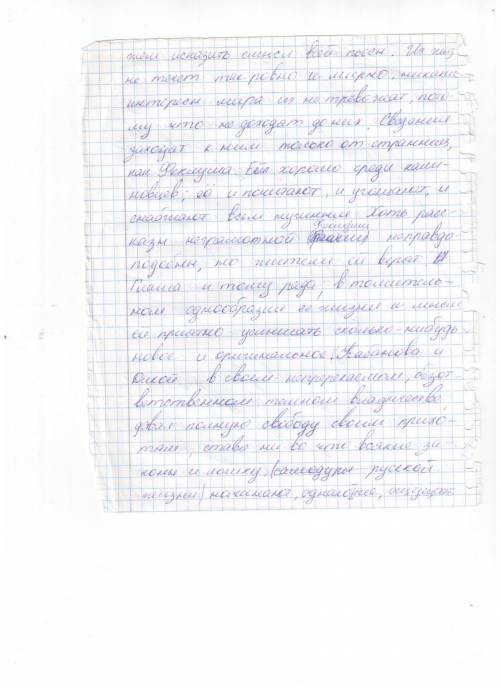 жет исказить смысл всей пьесы. Их жиз
не течет так ровно и мирно, никакие
интересы мира их не тревожат, пото
му что не доходят до них. Сведения
заходят к ним только от странниц,
как Феклуша. Ей хорошо среди кали-
новцев; её и почитают, и угощают, и
снабжают всем нужным. Хоть расс-
казы неграмотной Феклуши неправдо
подобны, но жители ей верят И
Глаша и тому рада, в томитель-
ном однообразии её жизни и мысли
ей приятно услышать сколько-нибудь
новое и оригинальное. Кабанова и
Дикой в своем непререкаемом, безот-
ветственном темном владычестве
давая полную свободу своим прихо-
тям, ставя ни во что всякие за-
коны и логику (самодуры русской
жизни) начинают, однако же, ощущать